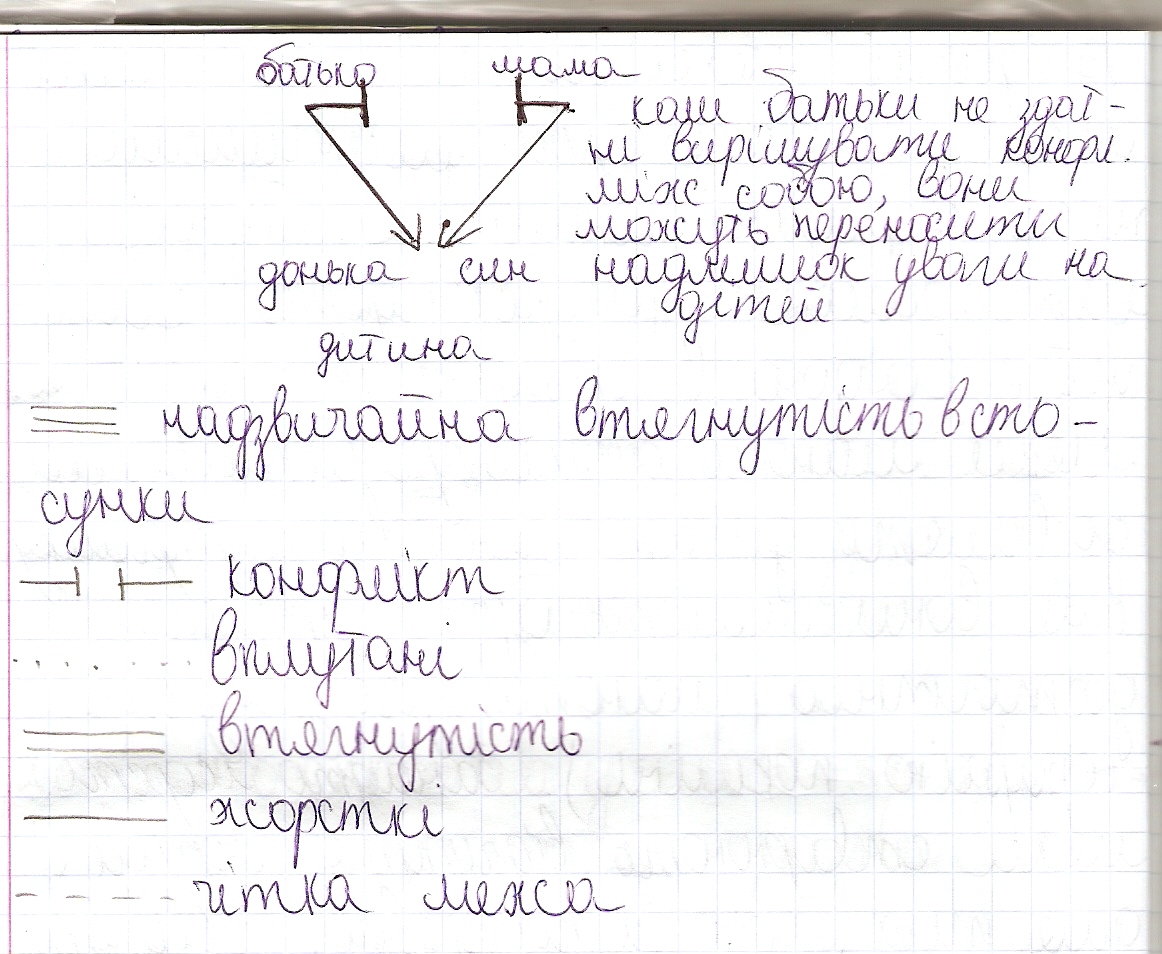 батько мама
коли батьки не здат-
ні вирішувати конфл.
між собою, вони
можуть переносити
донька син надлишок уваги на
дітей
дитина
надзвичайна втягнутість в сто-
сунки
конфлікт
вплутані
втягнутість
жорсткі
чітка межа